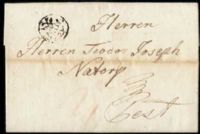 Herren
Herren Teodor Joseph
Natorp
Pest